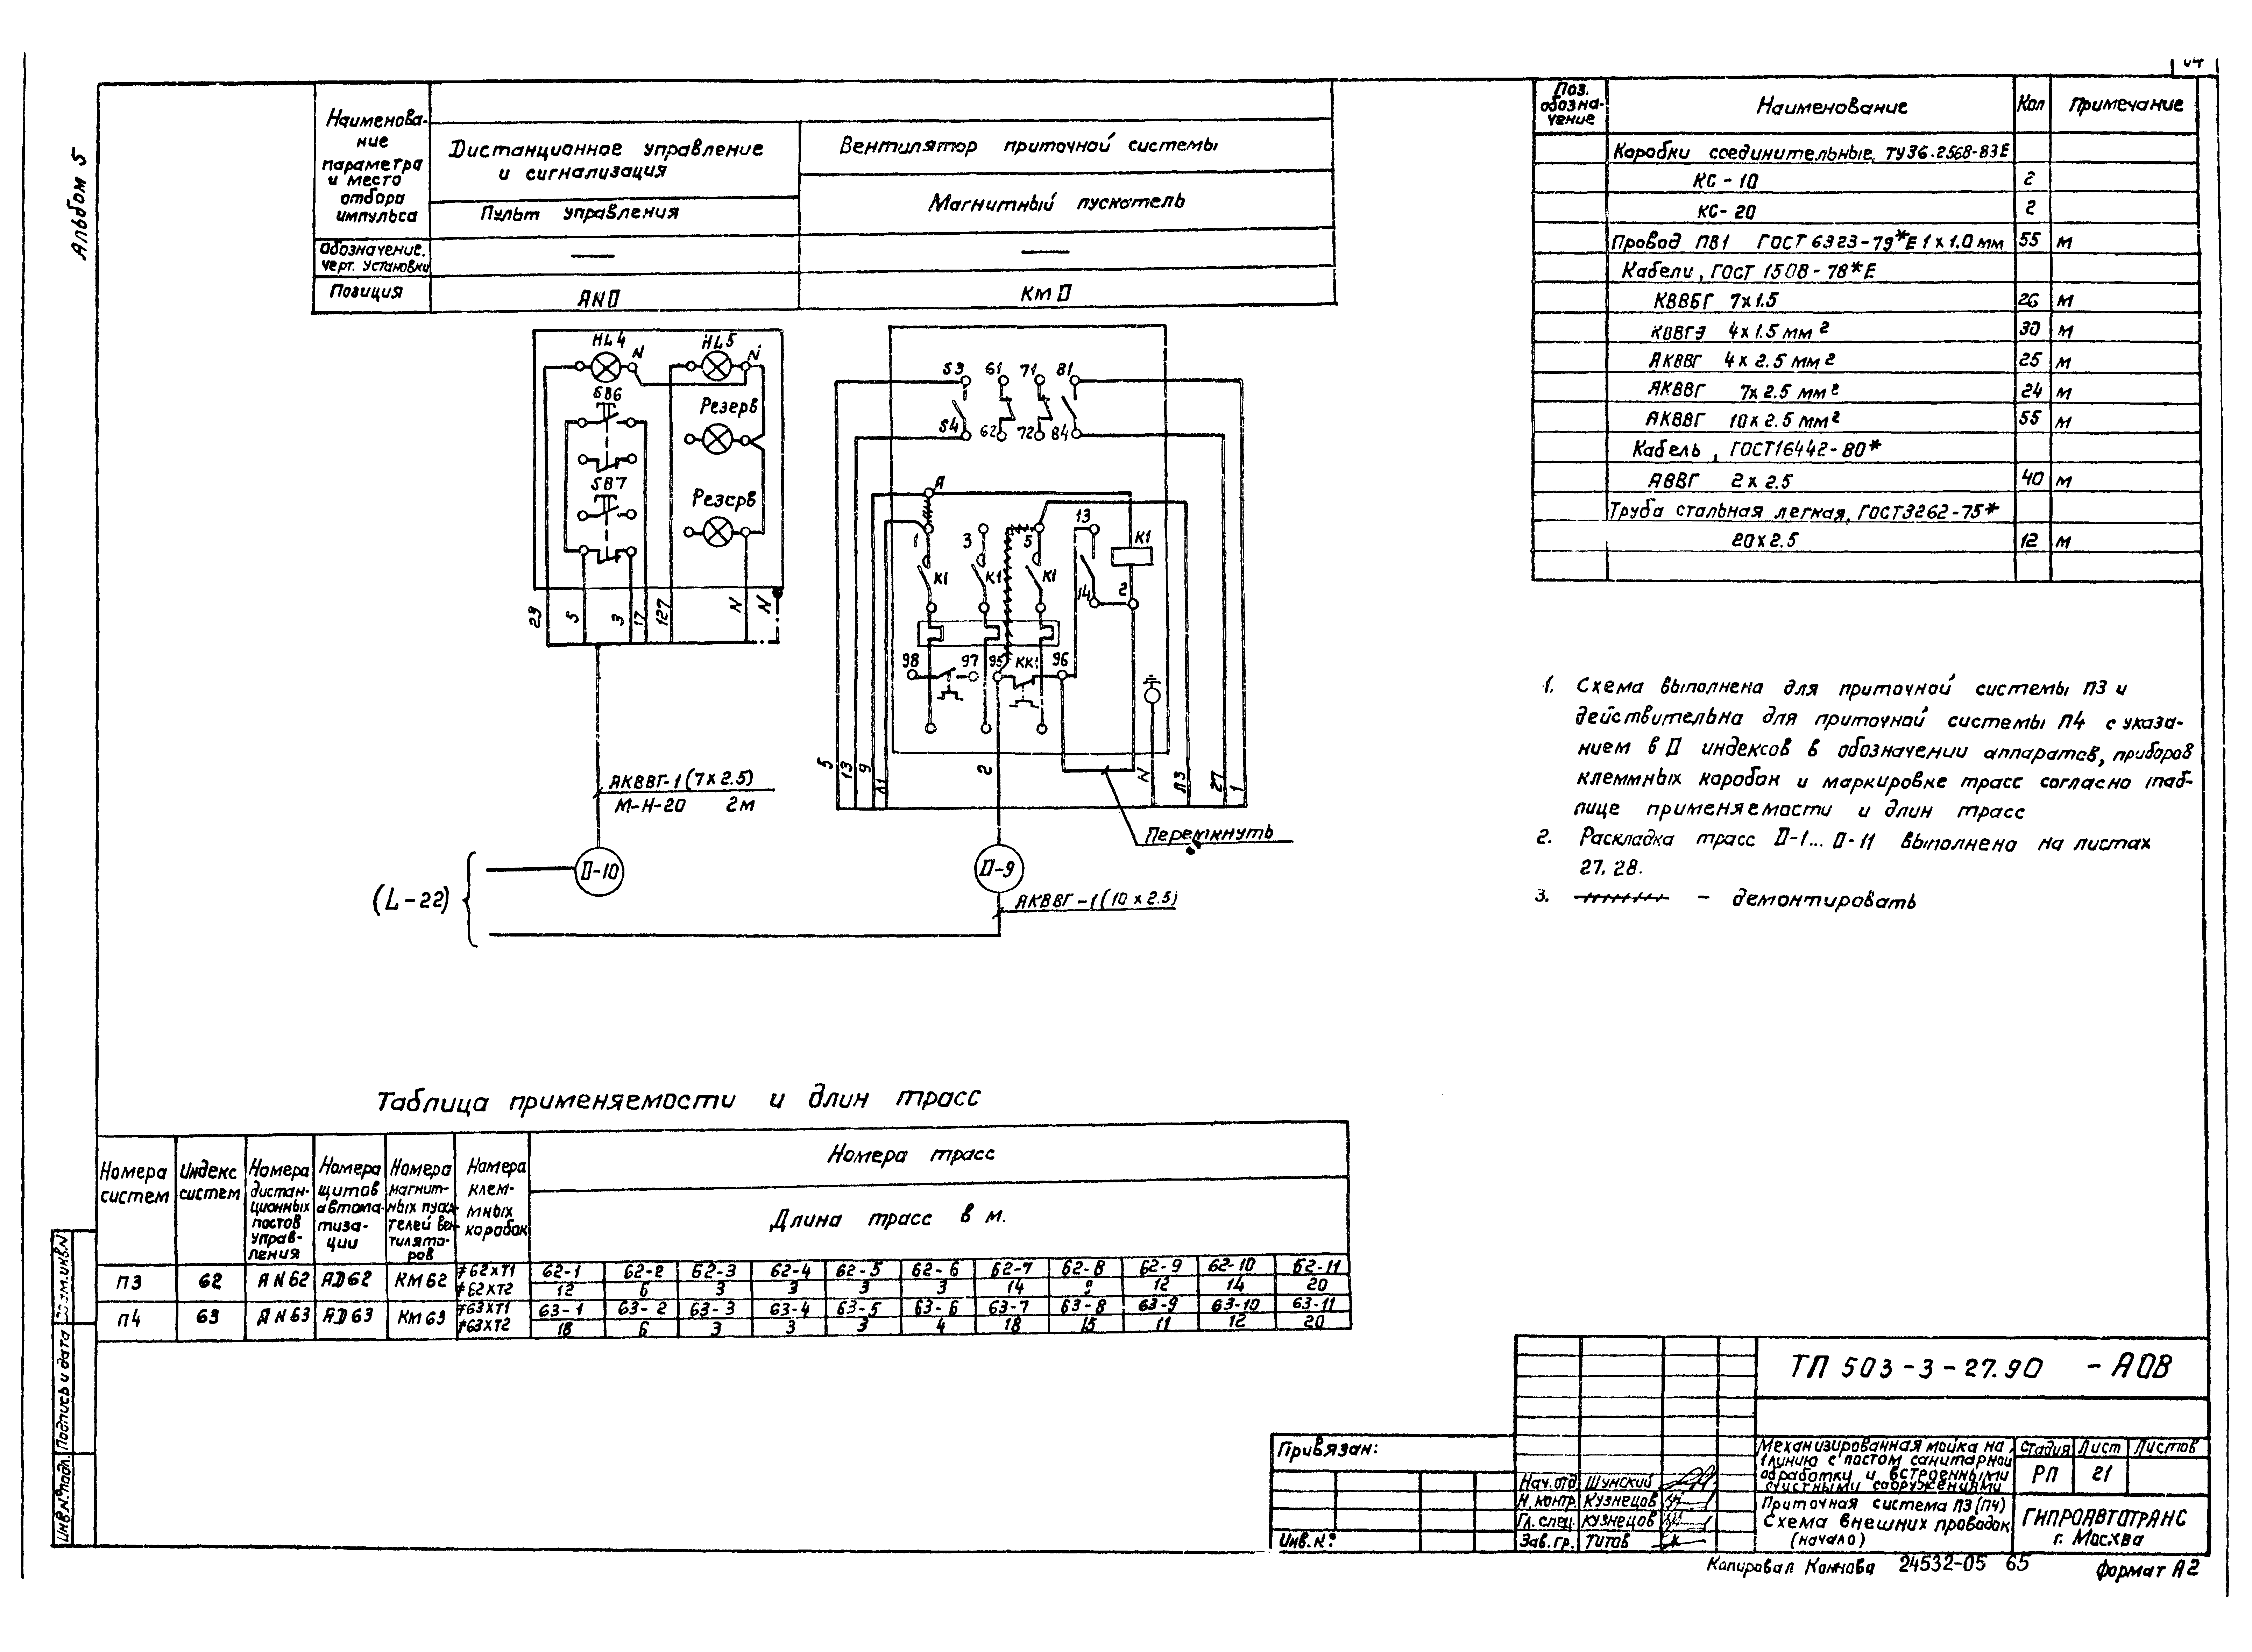 Альбом 5
Наименова-
ние
параметра
и место
отбора
импульса
Дистанционное управление
и сигнализация
Вентилятор приточной системы
Пульт управления
Магнитный пускатель
Обозначение.
черт. установки
—
—
Позиция
ANП
КМП
Поз.
обозна-
чение
Наименование
Кол
Примечание
Коробки соединительные, ТУ36.2568-83Е
КС-10 2
КС-20 2
Провод ПВ1 ГОСТ 6323-79*Е 1х1.0 мм 55 м
Кабели, ГОСТ 1508-78*Е
КВВБГ 7х1.5 26 м
КВВГЭ 4х1.5 мм² 30 м
АКВВГ 4х2.5 мм² 25 м
АКВВГ 7х2.5 мм² 24 м
АКВВГ 10х2.5 мм² 55 м
Кабель, ГОСТ16442-80*
АВВГ 2х2.5 40 м
Труба стальная легкая, ГОСТ3262-75*
20х2.5 12 м
HL4 N HL5 N
SB6
Резерв
SB7
Резерв
23 5 3 17 127 N N
53 61 71 81
54 62 72 84
А
1 3 5 13 К1
К1 К1 К1 14 2
98 97 95 КК1 96
5 13 9 Л1 2 N Л3 27 1
АКВВГ-1(7х2.5)
М-Н-20 2м
Перемкнуть
(L-22)
П-10
П-9
АКВВГ-1(10х2.5)
1. Схема выполнена для приточной системы П3 и
действительна для приточной системы П4 с указа-
нием в П индексов в обозначении аппаратов, приборов
клеммных коробок и маркировке трасс согласно таб-
лице применяемости и длин трасс
2. Раскладка трасс П-1... П-11 выполнена на листах
27, 28.
3. — демонтировать
Таблица применяемости и длин трасс
Номера
систем
Индекс
систем
Номера
дистан-
ционных
постов
управ-
ления
Номера
щитов
автома-
тиза-
ции
Номера
магнит-
ных пуска-
телей вен-
тилято-
ров
Номера
клем-
мных
коробок
Номера трасс
Длина трасс в м.
П3 62 AN62 AD62 КМ62 #62ХТ1 62-1 62-2 62-3 62-4 62-5 62-6 62-7 62-8 62-9 62-10 62-11
#62ХТ2 12 6 3 3 3 3 14 12 14 20
П4 63 AN63 AD63 КМ63 #63ХТ1 63-1 63-2 63-3 63-4 63-5 63-6 63-7 63-8 63-9 63-10 63-11
#63ХТ2 18 6 3 3 3 4 18 15 11 12 20
ТП 503-3-27.90 -АОВ
Привязан:
Инв.№
Нач.отд Шунский
Н.контр. Кузнецов
Гл.спец. Кузнецов
Зав.гр. Титов
Механизированная мойка на
1 линию с постом санитарной
обработки и встроенными
очистными сооружениями
Стадия Лист Листов
РП 21
Приточная система П3(П4)
Схема внешних проводок
(начало)
ГИПРОАВТОТРАНС
г. Москва
Копировал Коннова 24532-05 65 Формат А2
Инв.№подл. Подпись и дата Взам.инв.№